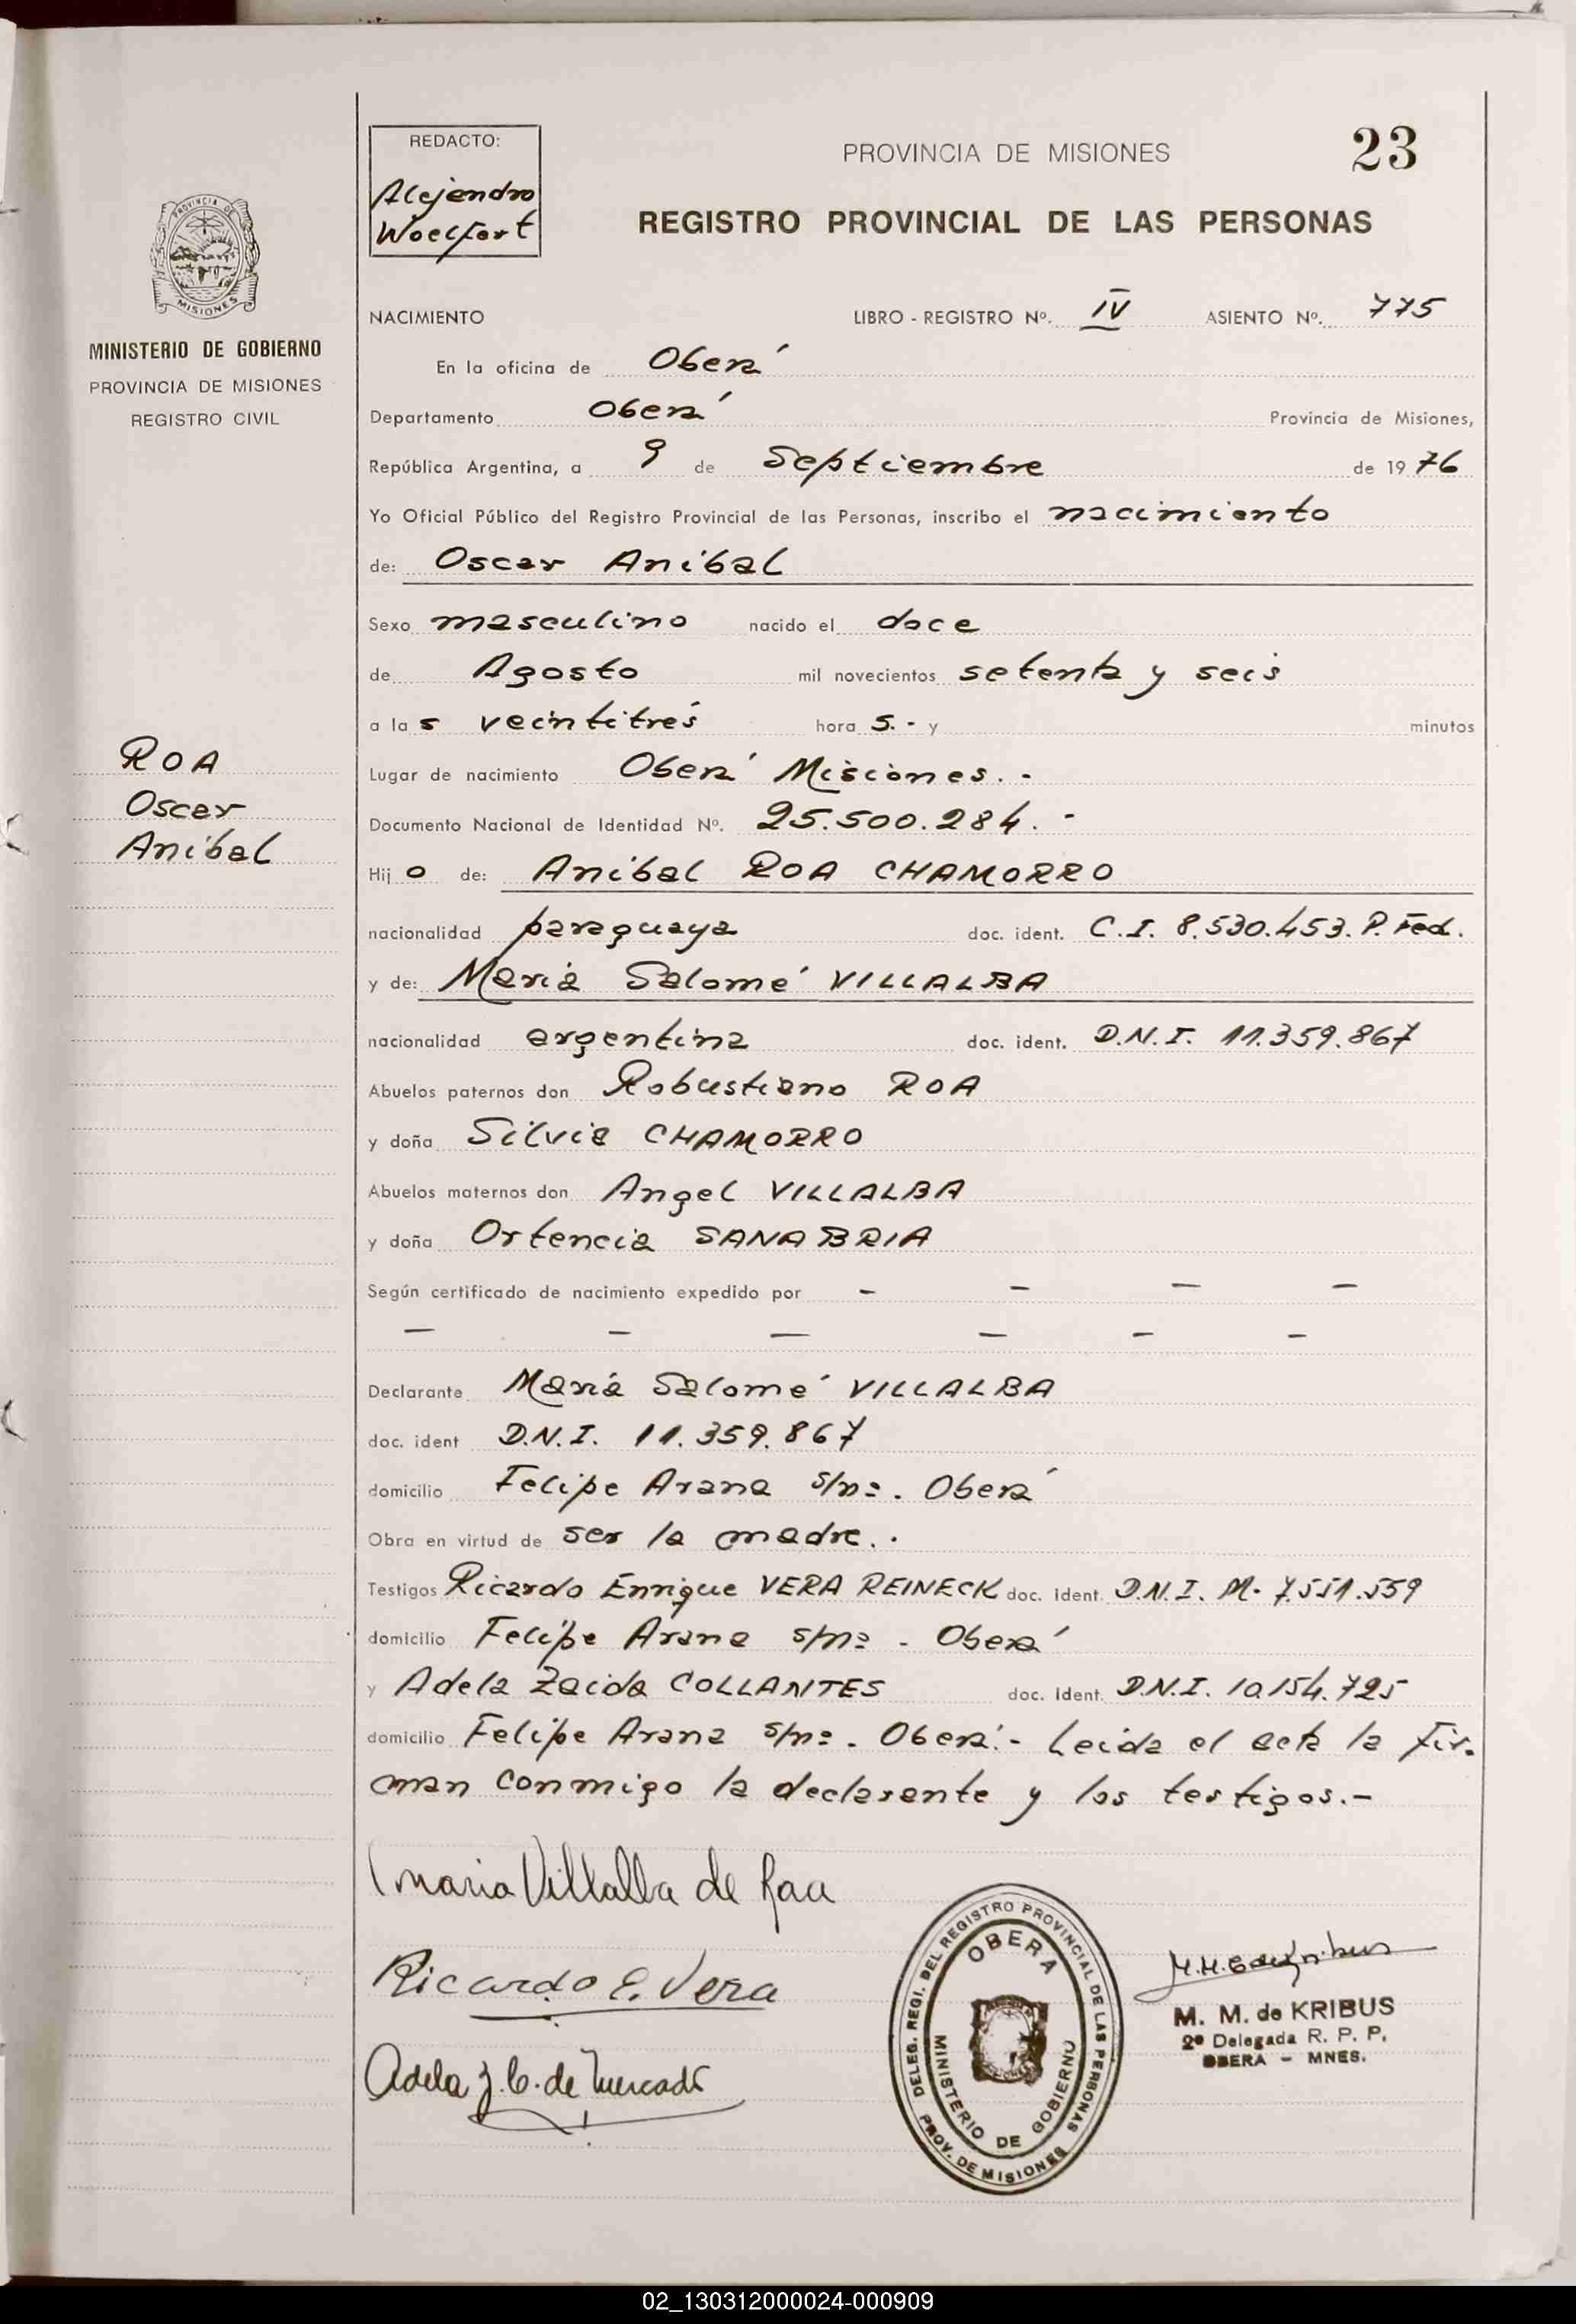 REDACTO:
Alejandro
Woelfort
PROVINCIA DE MISIONES
23
REGISTRO PROVINCIAL DE LAS PERSONAS
PROVINCIA DE
MISIONES
MINISTERIO DE GOBIERNO
PROVINCIA DE MISIONES
REGISTRO CIVIL
NACIMIENTO LIBRO - REGISTRO Nº. IV ASIENTO Nº. 775
En la oficina de Oberá
Departamento Oberá Provincia de Misiones,
República Argentina, a 9 de Septiembre de 1976
Yo Oficial Público del Registro Provincial de las Personas, inscribo el nacimiento
de: Oscar Aníbal
Sexo masculino nacido el doce
de Agosto mil novecientos setenta y seis
a las veintitrés horas.- y minutos
ROA
Oscar
Aníbal
Lugar de nacimiento Oberá Misiones.-
Documento Nacional de Identidad Nº. 25.500.284.-
Hijo de: Aníbal ROA CHAMORRO
nacionalidad paraguaya doc. ident. C.I. 8.530.453. P. Fed.
y de: María Salomé VILLALBA
nacionalidad argentina doc. ident. D.N.I. 11.359.867
Abuelos paternos don Robustiano ROA
y doña Silvia CHAMORRO
Abuelos maternos don Angel VILLALBA
y doña Ortencia SANABRIA
Según certificado de nacimiento expedido por - - - -
- - - - - -
Declarante María Salomé VILLALBA
doc. ident D.N.I. 11.359.867
domicilio Felipe Arana s/nº. Oberá
Obra en virtud de ser la madre.-
Testigos Ricardo Enrique VERA REINECK doc. ident. D.N.I. M. 7.551.559
domicilio Felipe Arana s/nº - Oberá
y Adela Zaida COLLANTES doc. ident. D.N.I. 10.154.725
domicilio Felipe Arana s/nº. Oberá.- Leida el acta la fir-
man conmigo la declarante y los testigos.-
Maria Villalba de Roa
Ricardo E. Vera
Adela Z. C. de Mercado
DELEG. REGI. DEL REGISTRO PROVINCIAL DE LAS PERSONAS
OBERA
MINISTERIO DE GOBIERNO
PROV. DE MISIONES
M. M. de KRIBUS
2º Delegada R. P. P.
OBERA - MNES.
02_130312000024-000909